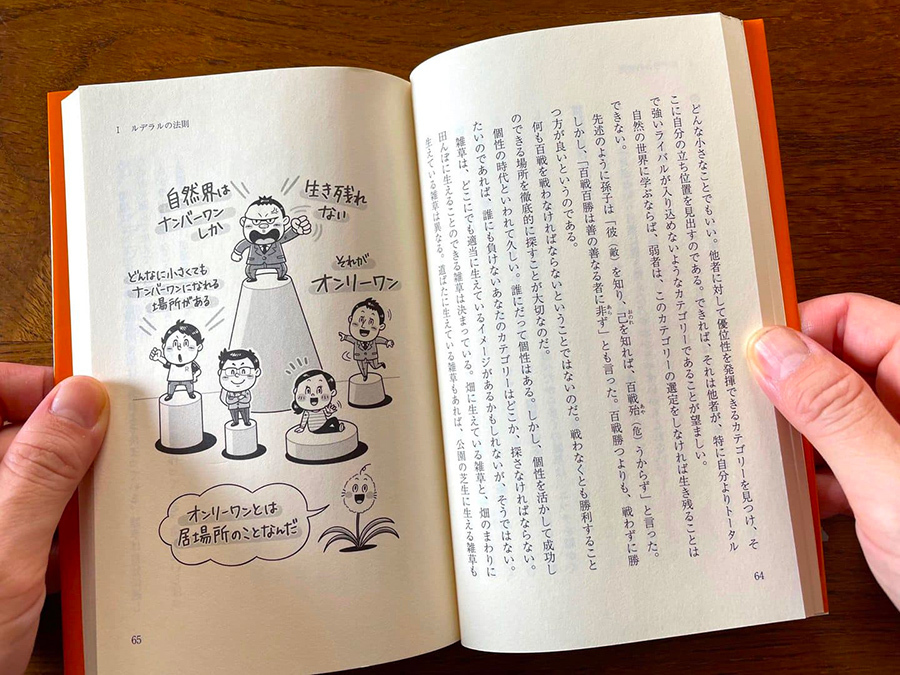 どんな小さなことでもいい。他者に対して優位性を発揮できるカテゴリーを見つけ、そ
こに自分の立ち位置を見出すのである。できれば、それは他者が、特に自分よりトータル
で強いライバルが入り込めないようなカテゴリーであることが望ましい。
自然の世界に学ぶならば、弱者は、このカテゴリーの選定をしなければ生き残ることは
できない。
先述のように孫子は「彼(敵)を知り、己を知れば、百戦殆(危)うからず」と言った。
しかし、「百戦百勝は善の善なる者に非ず」とも言った。百戦勝つよりも、戦わずに勝
つ方が良いというのである。
何も百戦を戦わなければならないということではないのだ。戦わなくとも勝利すること
のできる場所を徹底的に探すことが大切なのだ。
個性の時代といわれて久しい。誰にだって個性はある。しかし、個性を活かして成功し
たいのであれば、誰にも負けないあなたのカテゴリーはどこか、探さなければならない。
雑草は、どこにでも適当に生えているイメージがあるかもしれないが、そうではない。
田んぼに生えることのできる雑草は決まっている。畑に生えている雑草と、畑のまわりに
生えている雑草は異なる。道ばたに生えている雑草もあれば、公園の芝生に生える雑草も
64
I ルデラルの法則
自然界は
ナンバーワン
しか
生き残れ
ない
どんなに小さくても
ナンバーワンになれる
場所がある
それが
オンリーワン
オンリーワンとは
居場所のことなんだ
65